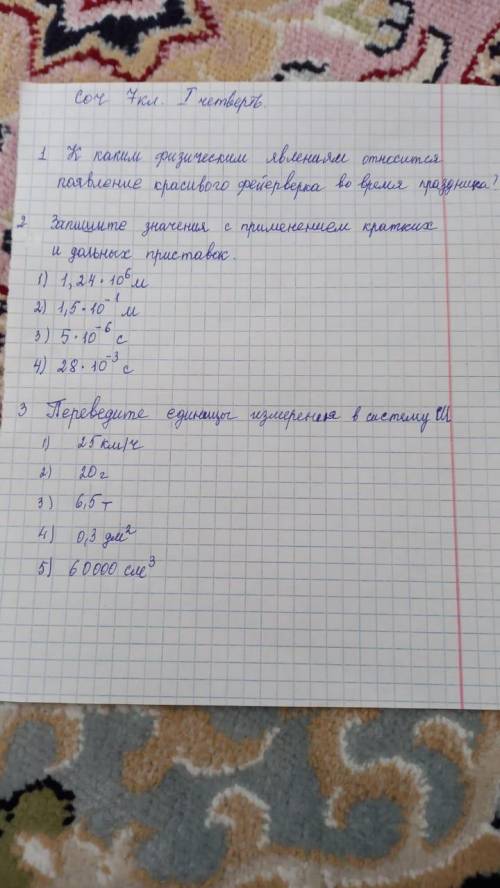 Соч 7кл. I четверть.
1 К каким физическим явлениям относится
появление красивого фейерверка во время праздника?
2 Запишите значения с применением кратких
и дольных приставок.
1) 1,24 · 10⁶ м
2) 1,5 · 10⁻¹ м
3) 5 · 10⁻⁶ с
4) 28 · 10⁻³ с
3 Переведите единицы измерения в систему СИ
1) 25 км/ч
2) 20 г
3) 6,5 т
4) 0,3 дм²
5) 60000 см³